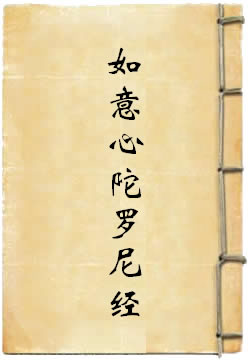 如意心陀罗尼经